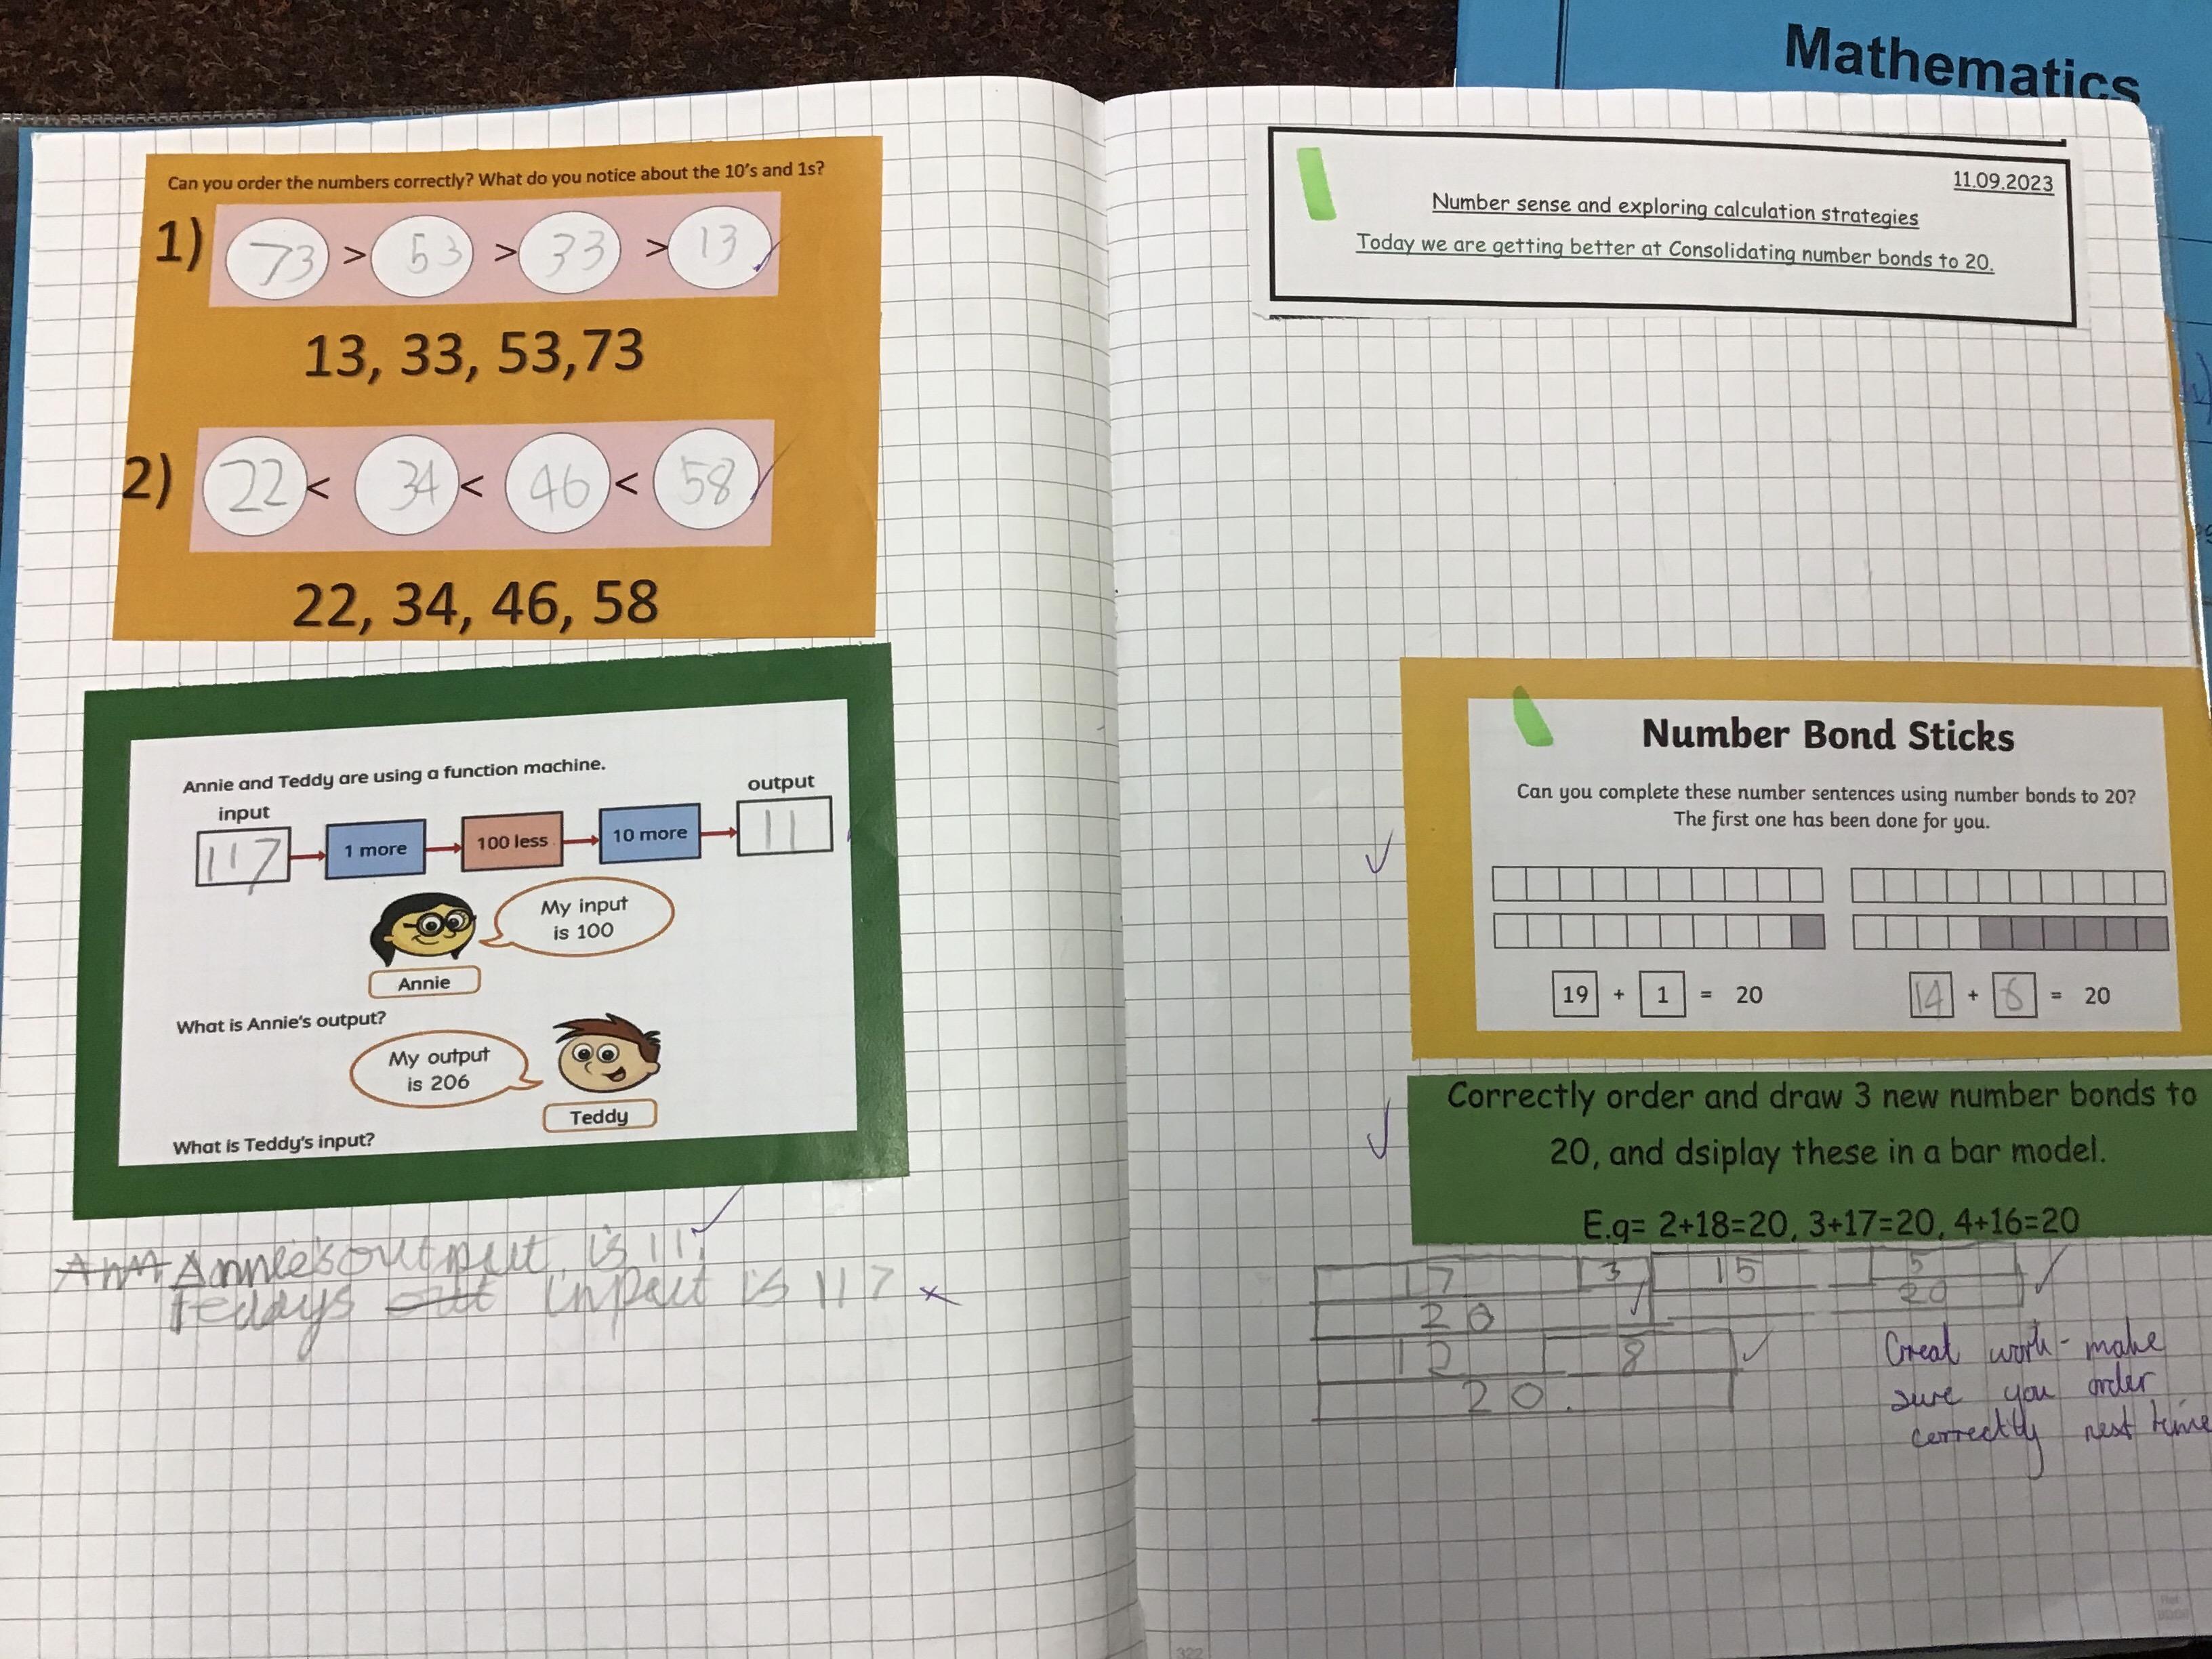 Can you order the numbers correctly? What do you notice about the 10's and 1s?
1) 73 > 53 > 33 > 13
13, 33, 53,73
2) 22 < 34 < 46 < 58
22, 34, 46, 58
Annie and Teddy are using a function machine.
input
output
117 1 more 100 less 10 more 11
My input
is 100
Annie
What is Annie's output?
My output
is 206
Teddy
What is Teddy's input?
Annie's output is 11.
Teddys input is 117
Mathematics
11.09.2023
Number sense and exploring calculation strategies
Today we are getting better at Consolidating number bonds to 20.
Number Bond Sticks
Can you complete these number sentences using number bonds to 20?
The first one has been done for you.
19 + 1 = 20
14 + 6 = 20
Correctly order and draw 3 new number bonds to
20, and dsiplay these in a bar model.
E.g= 2+18=20, 3+17=20, 4+16=20
17 3 15 5
20 20
12 8
20.
Great work - make
sure you order
correctly next time